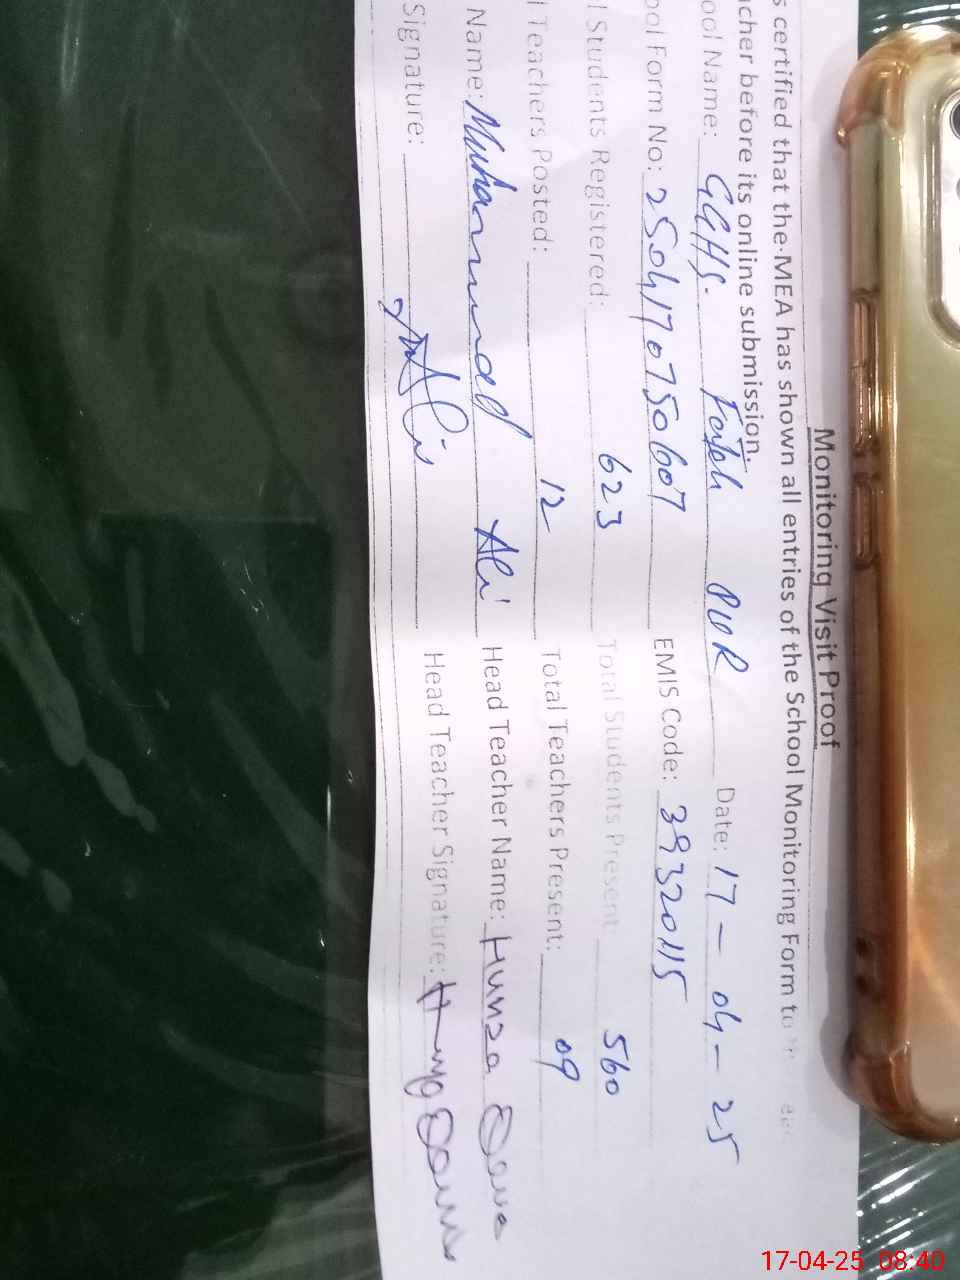 Monitoring Visit Proof
s certified that the MEA has shown all entries of the School Monitoring Form to
cher before its online submission.
ool Name: GGHS. Fateh PUR Date: 17-04-25
ool Form No: 2504170750607 EMIS Code: 39320115
l Students Registered: 623 Total Students Present 560
l Teachers Posted: 12 Total Teachers Present: 09
Name: Muhammad Ali Head Teacher Name: Humza
Signature: Head Teacher Signature:
17-04-25 08:40